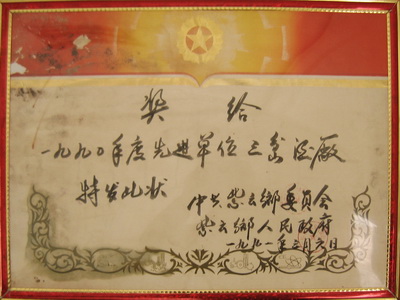 奖 给
一九九〇年度先进单位三岔酒廠
特发此状
中共紫云鄉委员会
紫云鄉人民政府
一九九一年 月六日